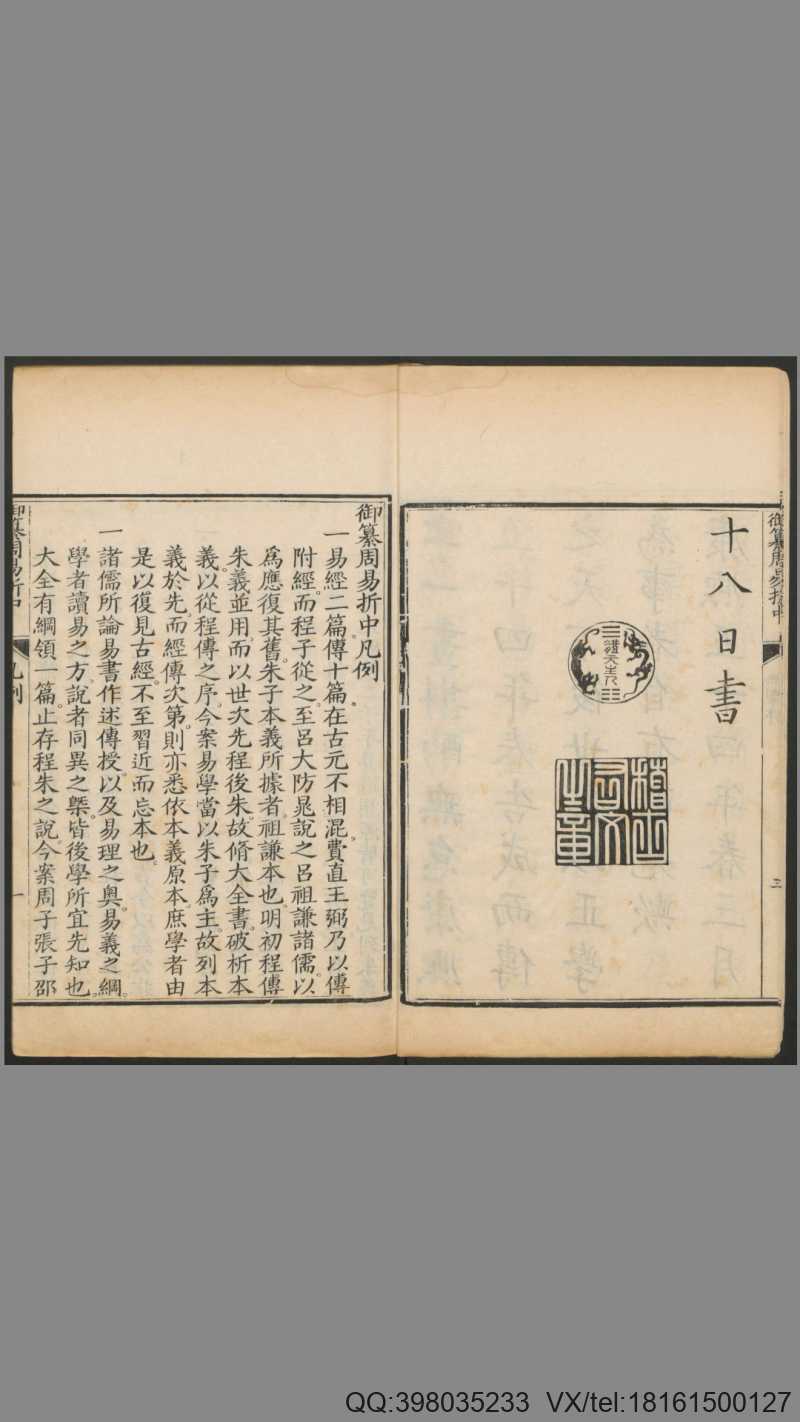 御纂周易折中
三
十八日書
體元主人
稽古
右文
之章
御纂周易折中凡例
一易經二篇。傳十篇。在古元不相混。費直王弼乃以傳
附經。而程子從之。至呂大防晁說之呂祖謙諸儒。以
爲應復其舊。朱子本義所據者。祖謙本也。明初程傳
朱義並用。而以世次先程後朱。故脩大全書。破析本
義。以從程傳之序。今案易學當以朱子爲主。故列本
義於先。而經傳次第。則亦悉依本義原本。庶學者由
是以復見古經。不至習近而忘本也。
一諸儒所論易書作述傳授。以及易理之奧。易義之綱。
學者讀易之方。說者同異之槩。皆後學所宜先知也。
大全有綱領一篇。止存程朱之說。今案周子張子邵
御纂周易折中
凡例
一
QQ:398035233 VX/tel:18161500127